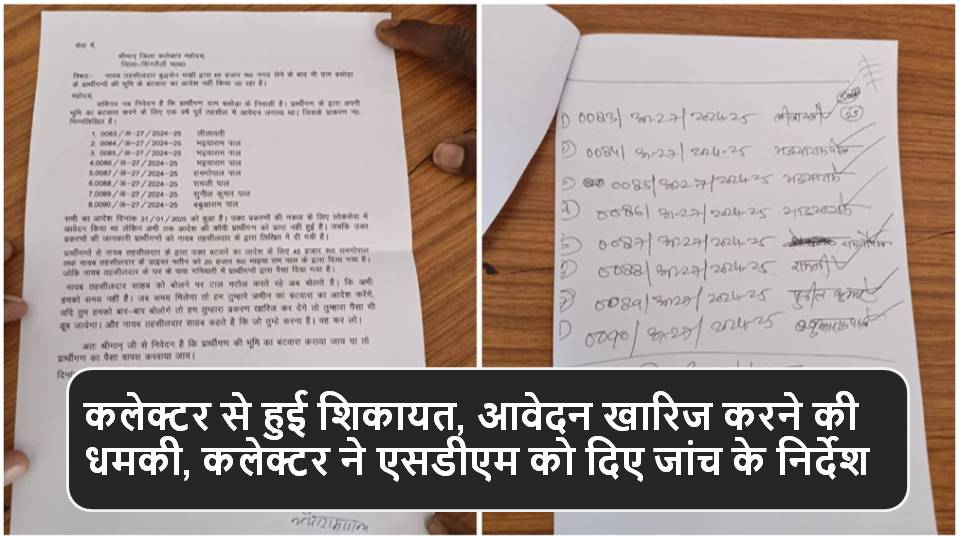 सेवा में,
श्रीमान् जिला कलेक्टर महोदय,
जिला-सिंगरौली म०प्र०
विषय:- नायब तहसीलदार बुद्धसेन माझी द्वारा 65 हजार रू० नगद लेने के बाद भी ग्राम बसोड़ा
के प्रार्थीगणों की भूमि के बटवारा का आदेश नहीं किया जा रहा है।
महोदय,
सविनय नम्र निवेदन है कि प्रार्थीगण ग्राम बसोड़ा के निवासी है। प्रार्थीगण के द्वारा अपनी
भूमि का बटवारा करने के लिए एक वर्ष पूर्व तहसील में आवेदन लगाया था। जिसके प्रकरण नं०
निम्नलिखित है।
1. 0083/अ-27/2024-25 लीलावती
2. 0084/अ-27/2024-25 भइयाराम पाल
3. 0085/अ-27/2024-25 भइयाराम पाल
4.0086/अ-27/2024-25 भइयाराम पाल
5.0087/अ-27/2024-25 रामगोपाल पाल
6.0088/अ-27/2024-25 रामजी पाल
7.0089/अ-27/2024-25 सुनील कुमार पाल
8.0090/अ-27/2024-25 बबुआराम पाल
सभी का आदेश दिनांक 31/01/2025 को हुआ है। उक्त प्रकरणों की नकल के लिए लोकसेवा में
आवेदन किया था लेकिन अभी तक आदेश की कॉपी प्रार्थीगण को प्राप्त नहीं हुई है। जबकि उक्त
प्रकरणों की जानकारी प्रार्थीगणों को नायब तहसीलदार के द्वारा लिखित में दी गयी है।
प्रार्थीगणों से नायब तहसीलदार के द्वारा उक्त बटवारे का आदेश के लिए 45 हजार रू० रामगोपाल
तथा नायब तहसीलदार के ड्राइवर मतीन को 20 हजार रू० भाइया राम पाल के द्वारा दिया गया है।
जोकि नायब तहसीलदार के घर के पास गनियारी में प्रार्थीगणों द्वारा पैसा दिया गया है।
नायब तहसीलदार साहब को बोलने पर टाल मटोल करते रहे अब बोलते है। कि अभी
हमको समय नहीं है। जब समय मिलेगा तो हम तुम्हारे जमीन का बटवारा का आदेश करेंगे,
यदि तुम हमको बार-बार बोलोगे तो हम तुम्हारा प्रकरण खारिज कर देंगे तो तुम्हारा पैसा भी
डूब जायेगा। और नायब तहसीलदार साहब कहते है कि जो तुम्हे करना है। वह कर लो।
अतः श्रीमान् जी से निवेदन है कि प्रार्थीगण की भूमि का बंटवारा कराया जाय या तो
प्रार्थीगण का पैसा वापस करवाया जाय।
0083/अ-27/2024-25 लीलावती
0084/अ-27/2024-25
0085/अ-27/2024-25
0086/अ-27/2024-25
0087/अ-27/2024-25
0088/अ-27/2024-25 रामजी
0089/अ-27/2024-25
0090/अ-27/2024-25
कलेक्टर से हुई शिकायत, आवेदन खारिज करने की
धमकी, कलेक्टर ने एसडीएम को दिए जांच के निर्देश